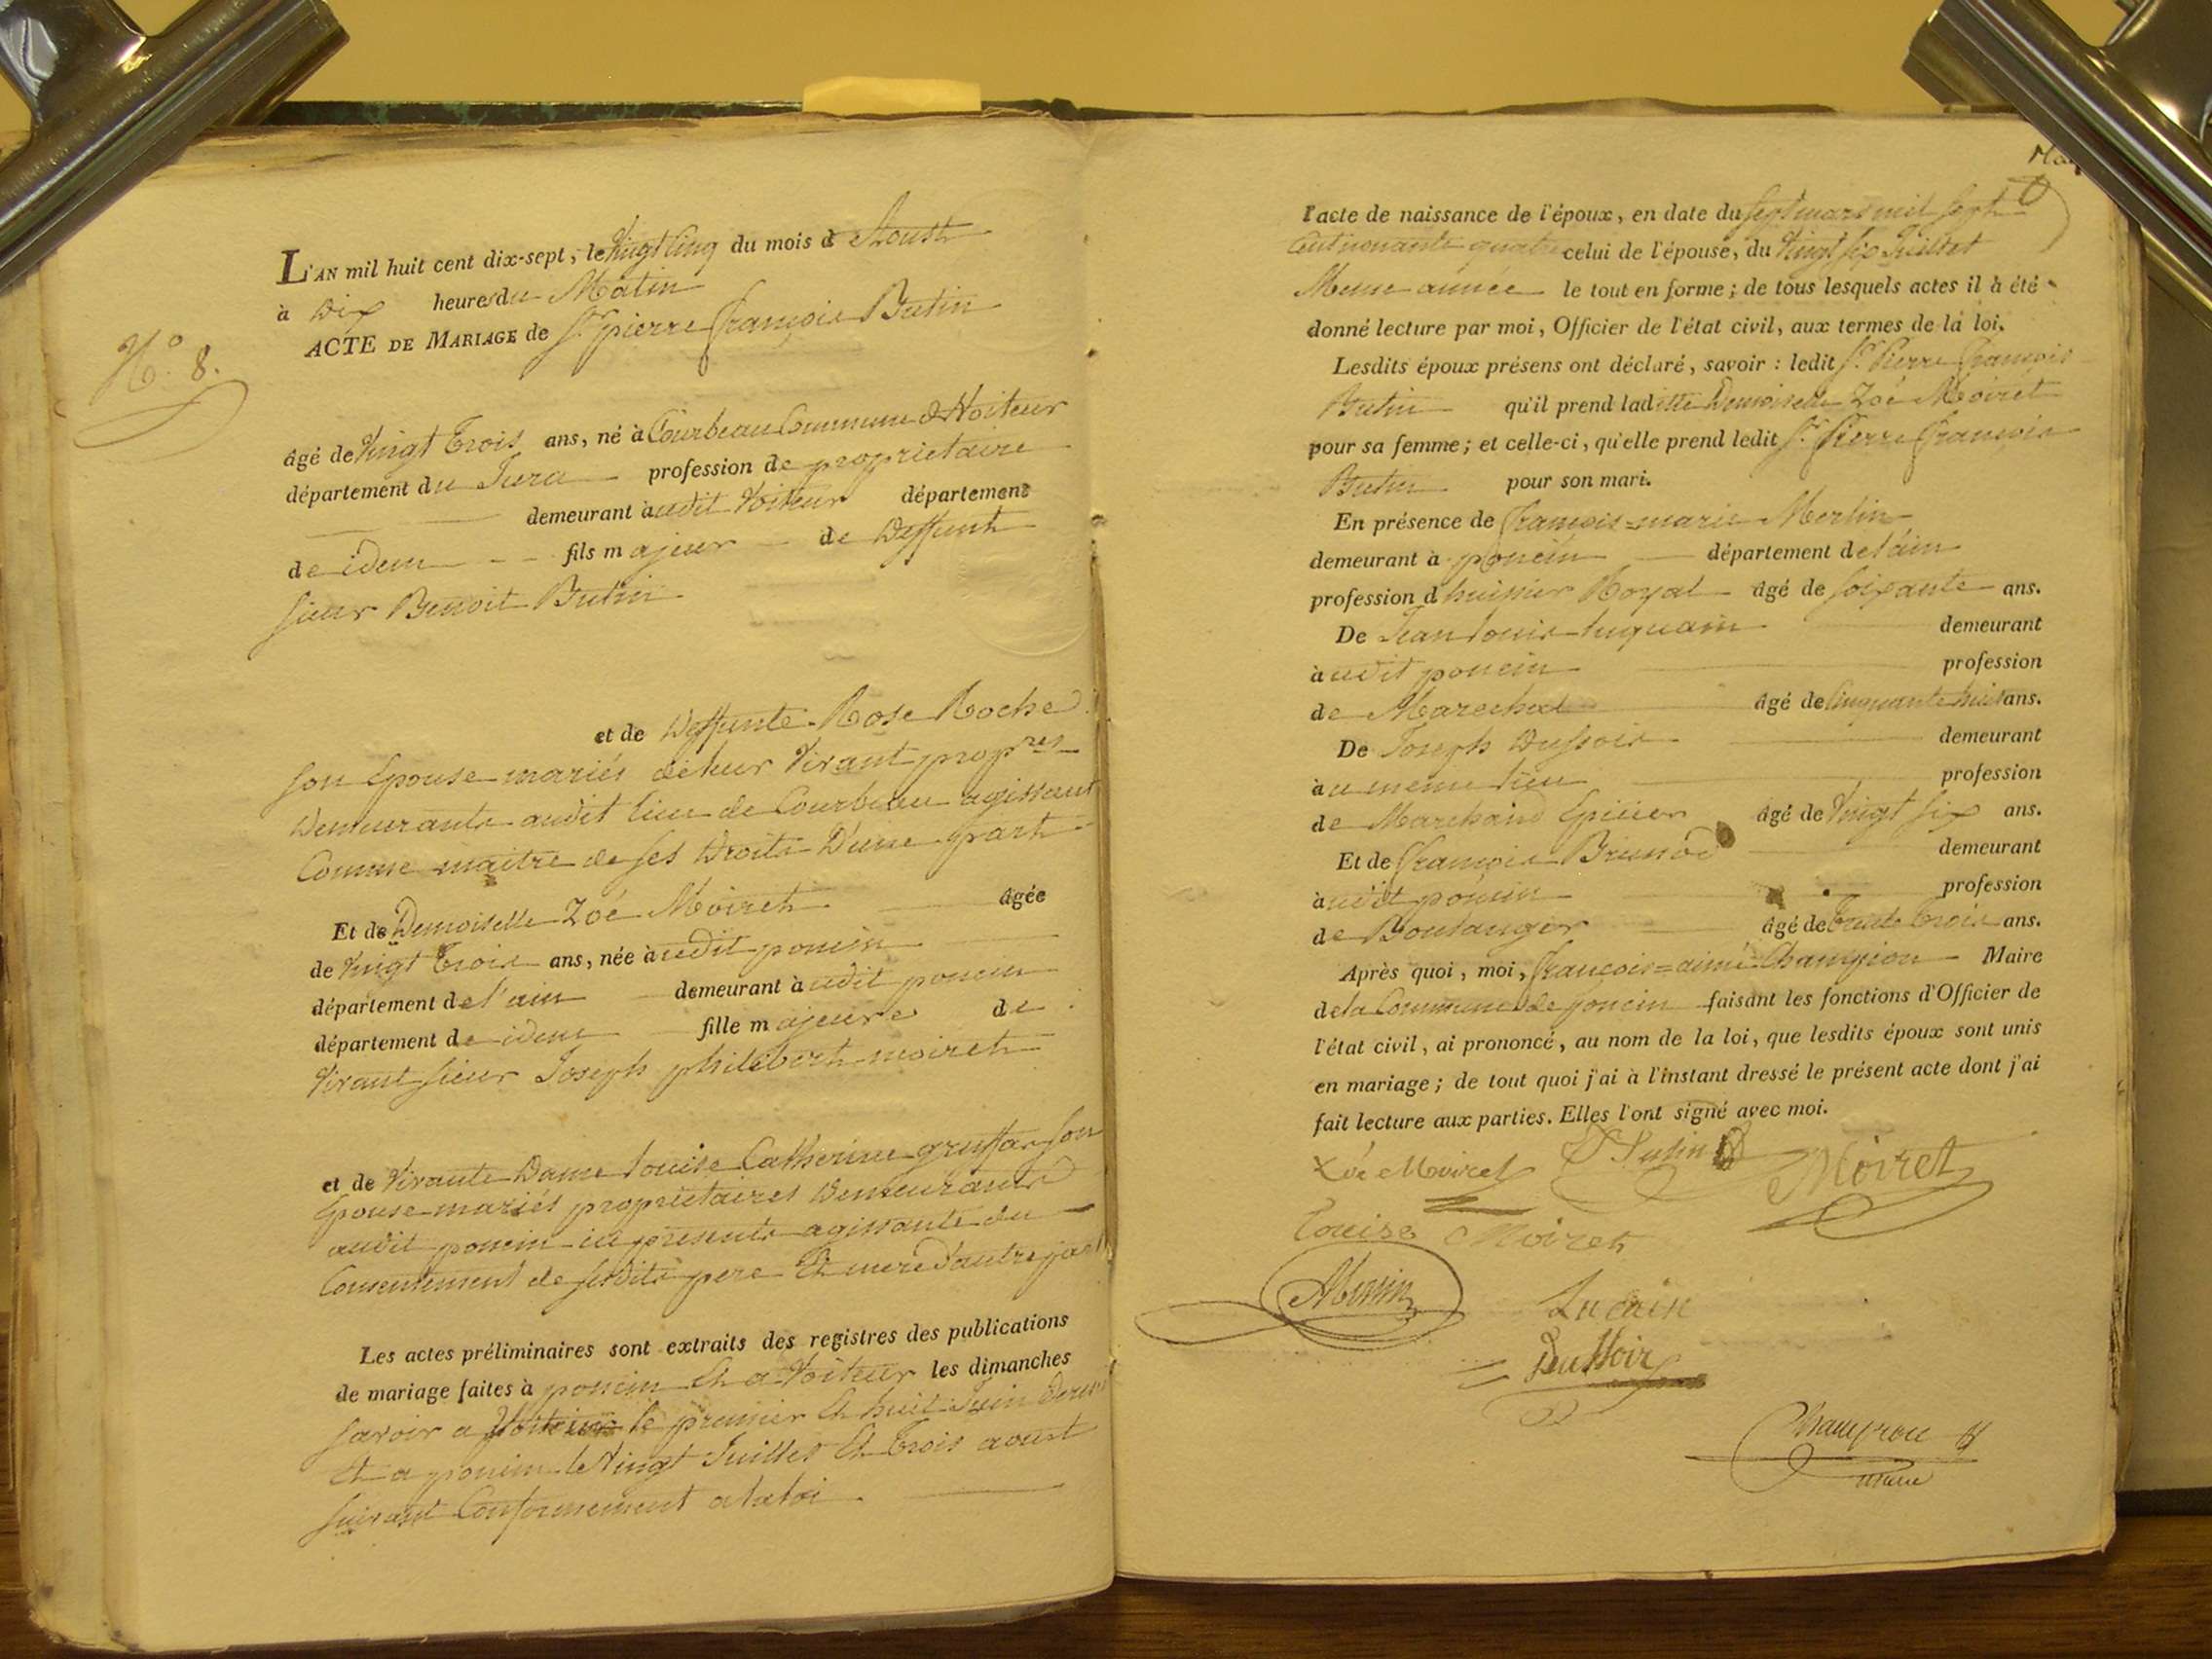 L'AN mil huit cent dix-sept, le Vingt Cinq du mois d Aoust
à Dix heures du Matin
ACTE DE MARIAGE de Sr. pierre françois Butin
N.° 8.
âgé de Vingt Trois ans, né à Courbeau Commune d Voiteur
département du Jura profession de proprietaire
demeurant audit Voiteur département
de idem fils majeur de Deffunt
sieur Benoit Butin
et de Deffunte Rose Roche
son Epouse mariés de leur Vivant propres
Demeurants audit lieu de Courbeau agissant
Comme maitre de ses Droits D'une part
Et de Demoiselle Zoé Moiret âgée
de Vingt Trois ans, née audit poncin
département de l'ain demeurant audit poncin
département de idem fille majeure de
Vivant sieur Joseph philibert moiret
et de Vivante Dame Louise Catherine son
Epouse mariés proprietaires Demeurants
audit poncin ici présents agissante du
Consentement de sesdits pere Et mere d'autre part
Les actes préliminaires sont extraits des registres des publications
de mariage faites à poncin Et a Voiteur les dimanches
savoir a Voiteur le premier Et huit Juin dernier
Et a poncin le Vingt Juillet Et Trois aoust
suivant Conformement a la loi
Mar
l'acte de naissance de l'époux, en date du sept mars mil sept
Cent nonante quatre celui de l'épouse, du Vingt six Juillet
Meme année le tout en forme ; de tous lesquels actes il à été
donné lecture par moi, Officier de l'état civil, aux termes de la loi.
Lesdits époux présens ont déclaré, savoir : ledit Sr. Pierre François
Butin qu'il prend laditte Demoiselle Zoé Moiret
pour sa femme ; et celle-ci, qu'elle prend ledit Sr. Pierre françois
Butin pour son mari.
En présence de françois=marie Merlin
demeurant à poncin département de l'ain
profession d huissier Royal âgé de soixante ans.
De Jean Louis demeurant
audit poncin profession
de Marechal âgé de Cinquante huit ans.
De Joseph Dussoir demeurant
au meme lieu profession
de Marchand Epicier âgé de Vingt six ans.
Et de françois Brunod demeurant
audit poncin profession
de Boulanger âgé de Trente Trois ans.
Après quoi, moi, françois=aimé Champion Maire
de la Commune de poncin faisant les fonctions d'Officier de
l'état civil, ai prononcé, au nom de la loi, que lesdits époux sont unis
en mariage ; de tout quoi j'ai à l'instant dressé le présent acte dont j'ai
fait lecture aux parties. Elles l'ont signé avec moi.
Zoé Moiret Butin Moiret
Louise Moiret
Lucain
Dussoir
Champion
maire